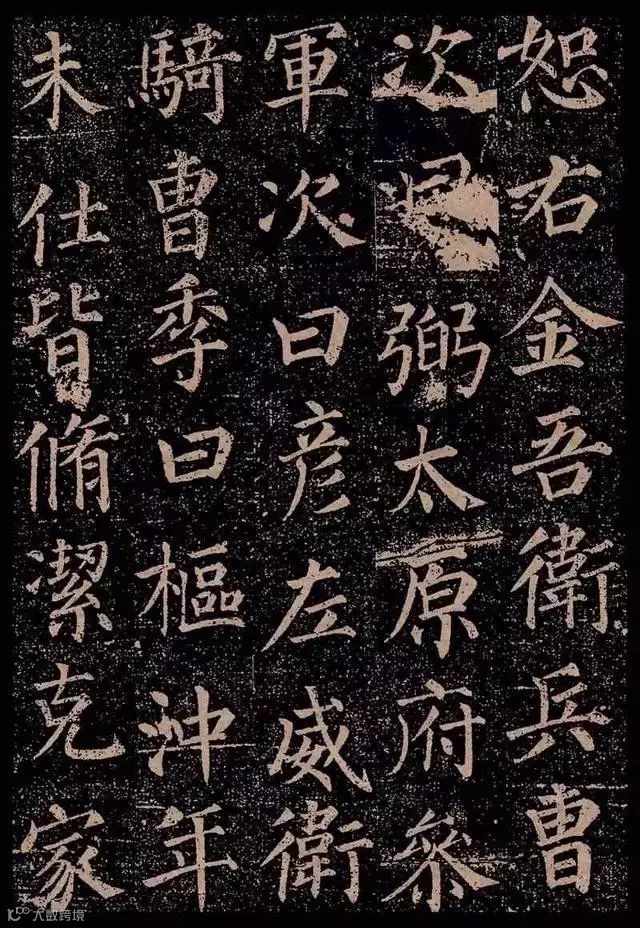 恕右金吾衛兵曹
次弼太原府叅
軍次曰彦左威衛
騎曹季曰樞沖年
未仕皆脩潔克家
大数跨境